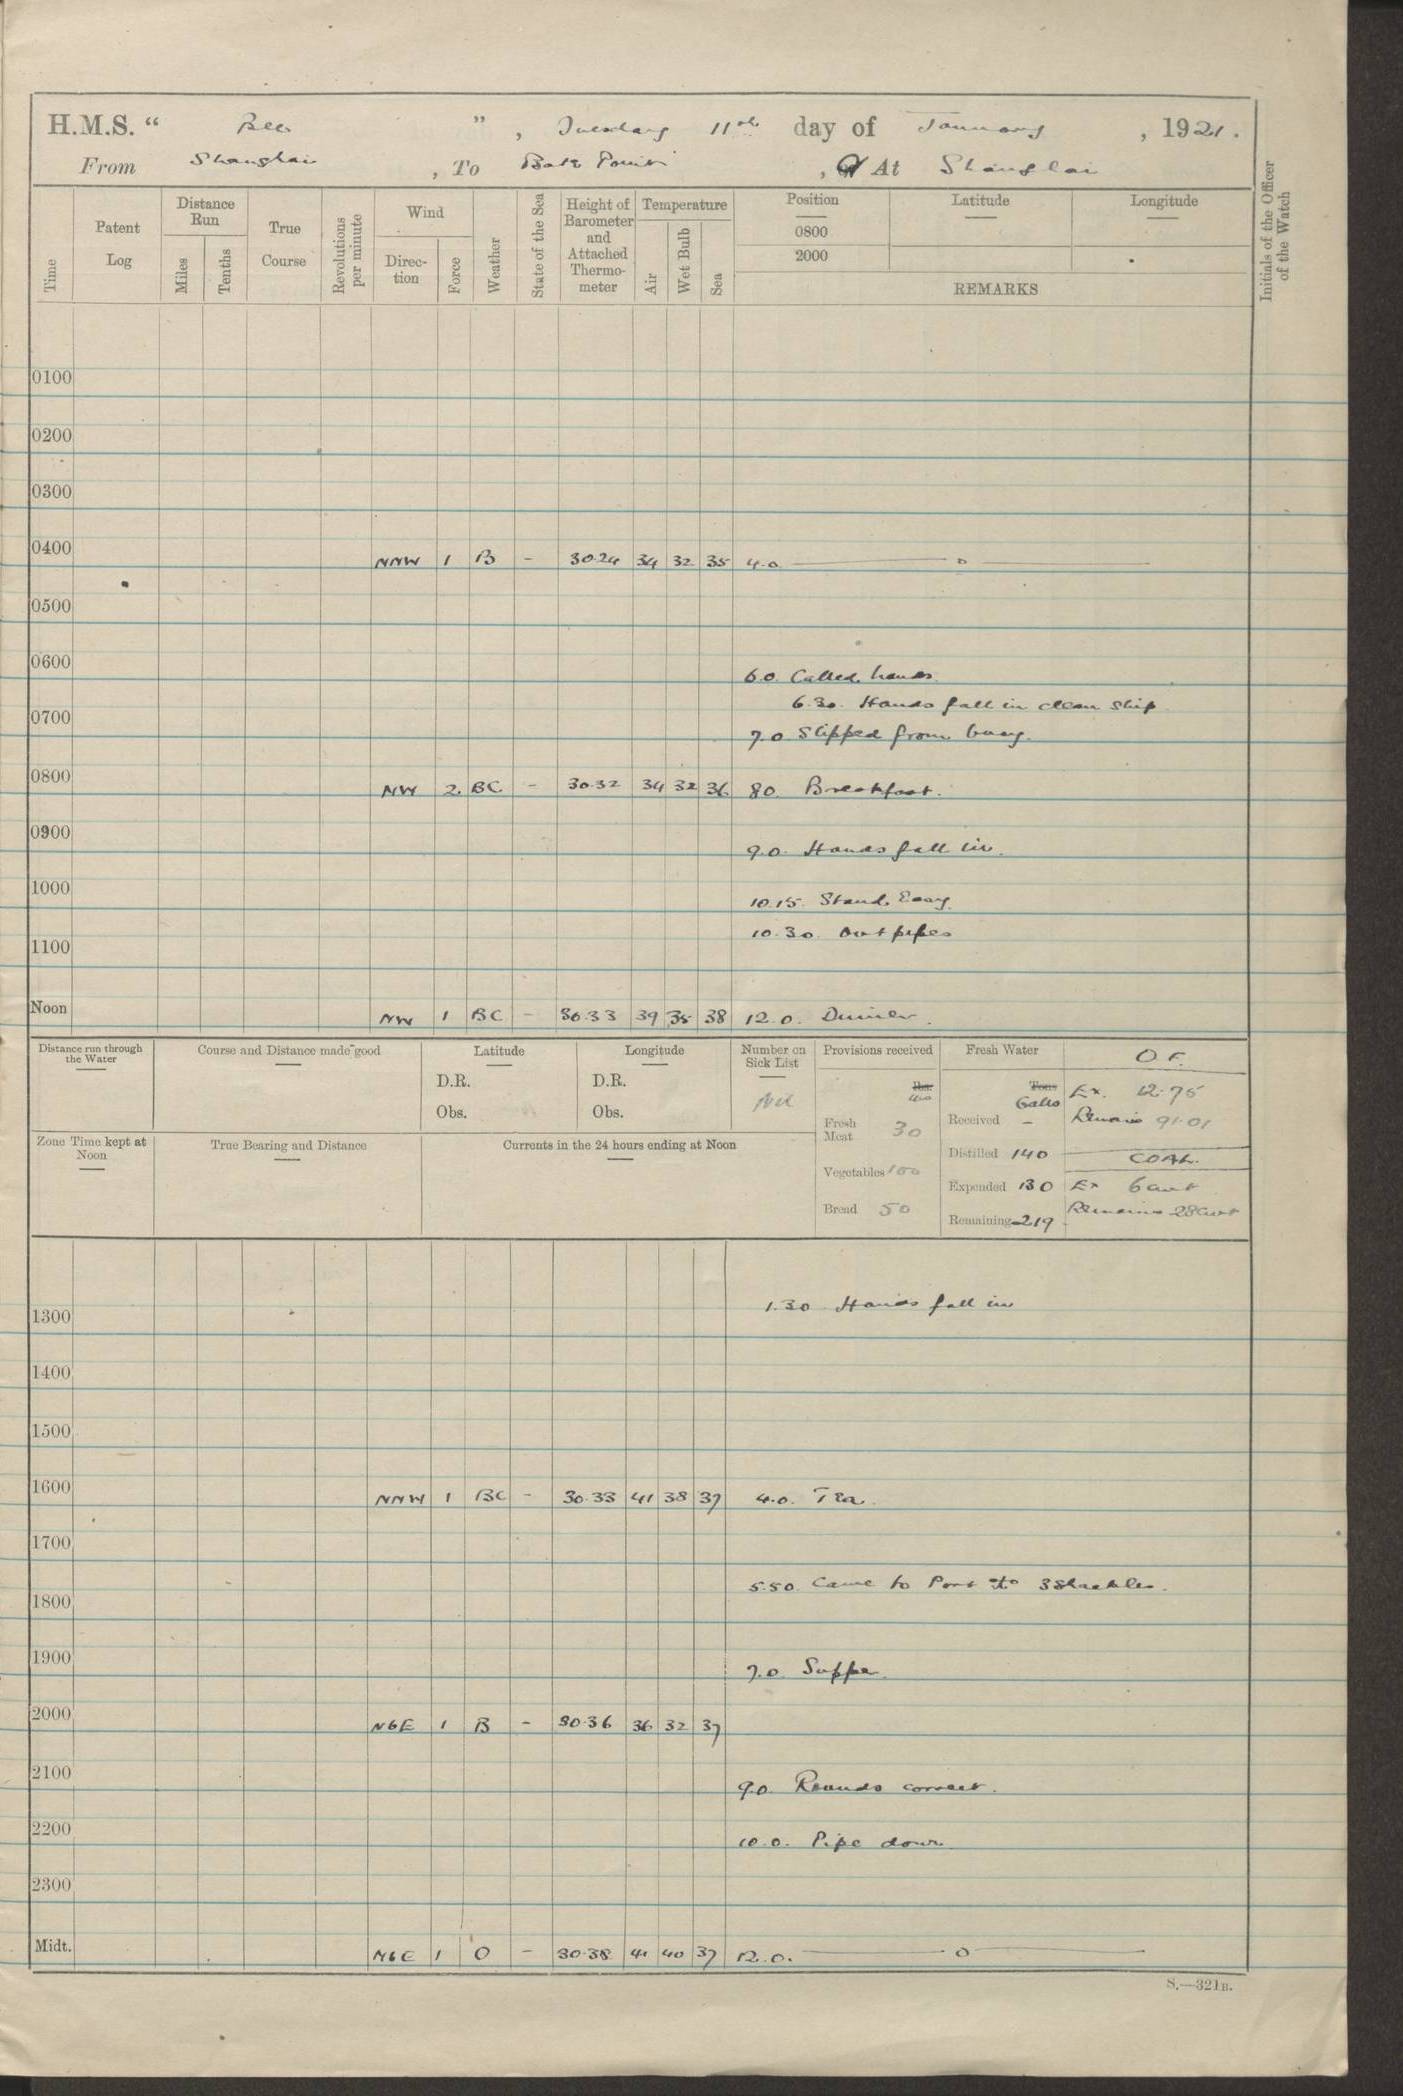 H.M.S. “ Bee ” , Tuesday 11th day of January , 1921.
From Shanghai , To Bate Point , or At Shanghai
Time
Patent Log
Distance Run
Miles
Tenths
True Course
Revolutions per minute
Wind
Direc-tion
Force
Weather
State of the Sea
Height of Barometer and Attached Thermo-meter
Temperature
Air
Wet Bulb
Sea
Position
0800
2000
Latitude
Longitude
REMARKS
Initials of the Officer of the Watch
0100
0200
0300
0400 NNW 1 B - 30.24 34 32 35 4.0 ——— o ———
0500
0600 6.0. Called hands.
6.30. Hands fall in clean ship
0700 7.0 Slipped from buoy.
0800 NW 2. BC - 30.32 34 32 36 80. Breakfast.
0900 9.0. Hands fall in.
1000 10.15. Stand Easy.
10.30. Out pipes
1100
Noon NW 1 BC - 30.33 39 35 38 12.0. Dinner.
Distance run through the Water
Course and Distance made good
Latitude
D.R.
Obs.
Longitude
D.R.
Obs.
Number on Sick List
Nil
Provisions received
lbs.
lbs
Fresh Meat 30
Vegetables 100
Bread 50
Fresh Water
Tons
Galls
Received -
Distilled 140
Expended 130
Remaining 219
O.F.
Ex. 12.75
Remains 91.01
COAL.
Ex 6 cwt
Remains 28 cwt
Zone Time kept at Noon
True Bearing and Distance
Currents in the 24 hours ending at Noon
1300 1.30 Hands fall in
1400
1500
1600 NNW 1 BC - 30.33 41 38 37 4.0. Tea.
1700
5.50. Came to Port to 3 Shackles.
1800
1900 7.0. Supper.
2000 NbE 1 B - 30.36 36 32 37
2100 9.0. Rounds correct.
2200 10.0. Pipe down
2300
Midt. NbE 1 O - 30.38 41 40 37 12.0. ——— o ———
S.—321B.